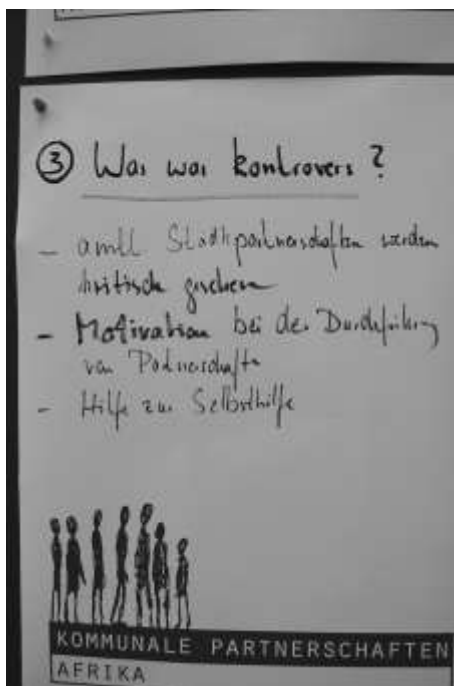 ③ Was war kontrovers?
- amtl Stadtpartnerschaften werden
kritisch gesehen
- Motivation bei der Durchführung
von Partnerschafte
- Hilfe zur Selbsthilfe
KOMMUNALE PARTNERSCHAFTEN
AFRIKA